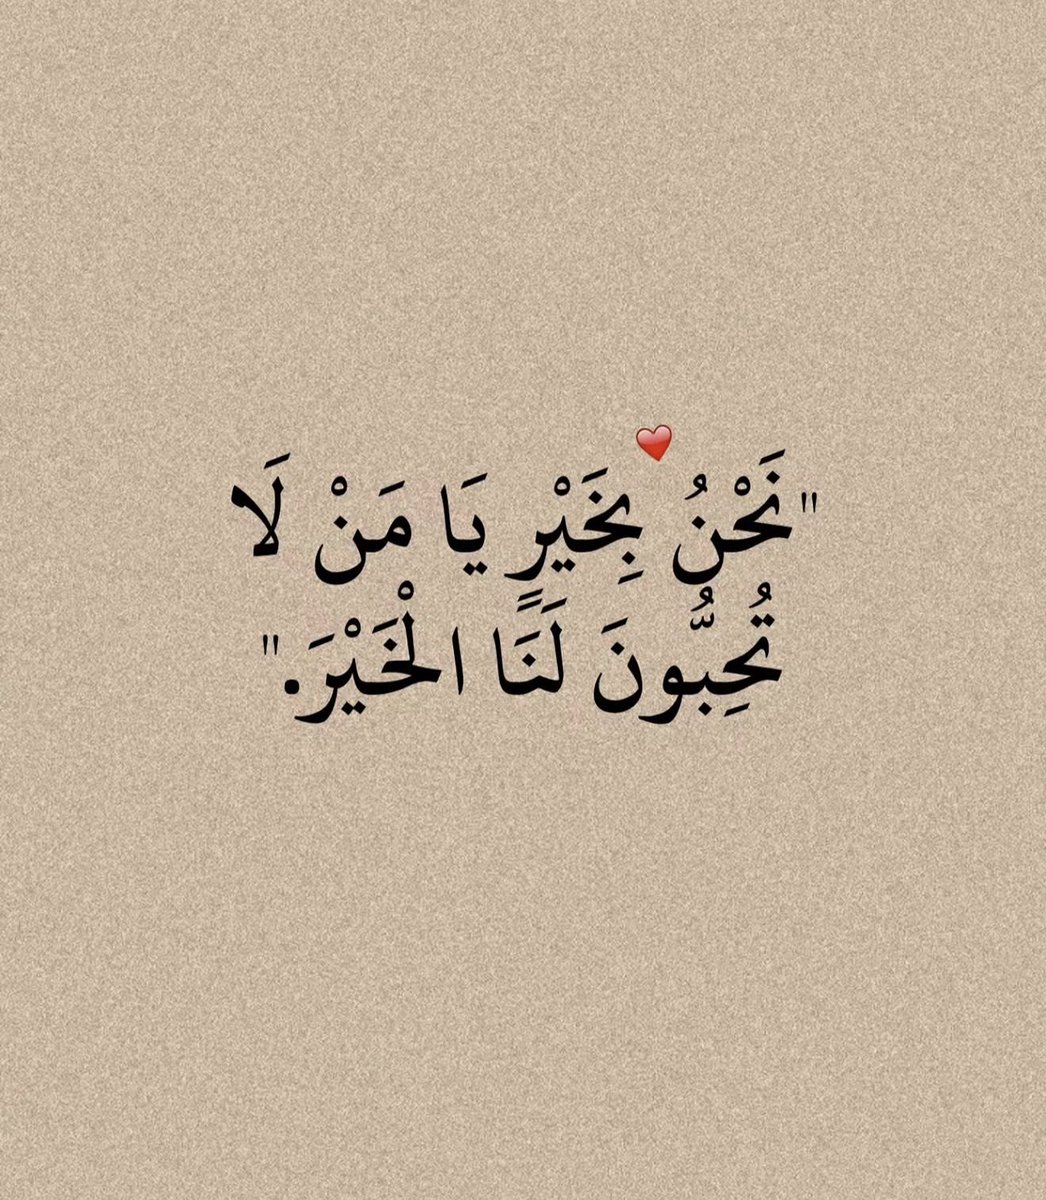 "نَحْنُ بِخَيْرٍ يَا مَنْ لَا
تُحِبُّونَ لَنَا الْخَيْرَ."